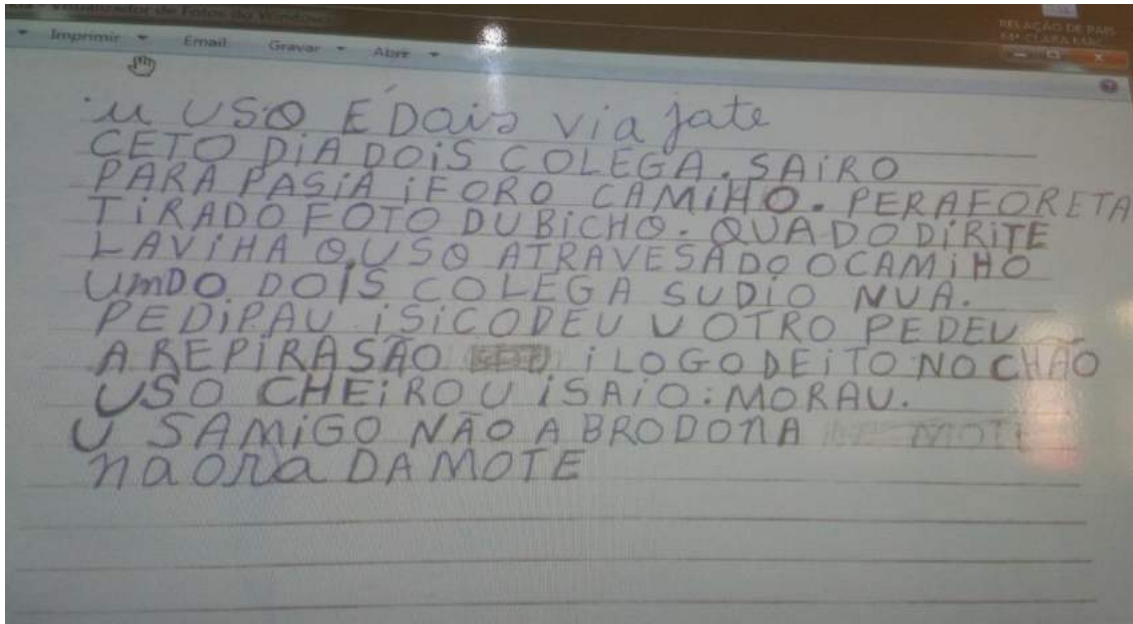 Visualizador de Fotos do Windows
RELAÇÃO DE PAIS
Mª CLARA MAC
Imprimir Email Gravar Abrir
u USO E Dois viajate
CETO DiA DOiS COLEGA. SAiRO
PARA PASiA iFORO CAMiHO. PERAFORETA
TiRADO FOTO DUBiCHO. QUADODiRiTE
LAViHA O USO ATRAVESADO OCAMiHO
UmDO DOiS COLEGA SUDiO NUA.
PEDiPAU iSiCODEU U OTRO PEDEU
A REPiRASÃO iLOGODEiTO NO CHÃO
USO CHEiROU iSAiO: MORAU.
U SAMiGO NÃO ABRODOnA MOTE
na ora DAMOTE